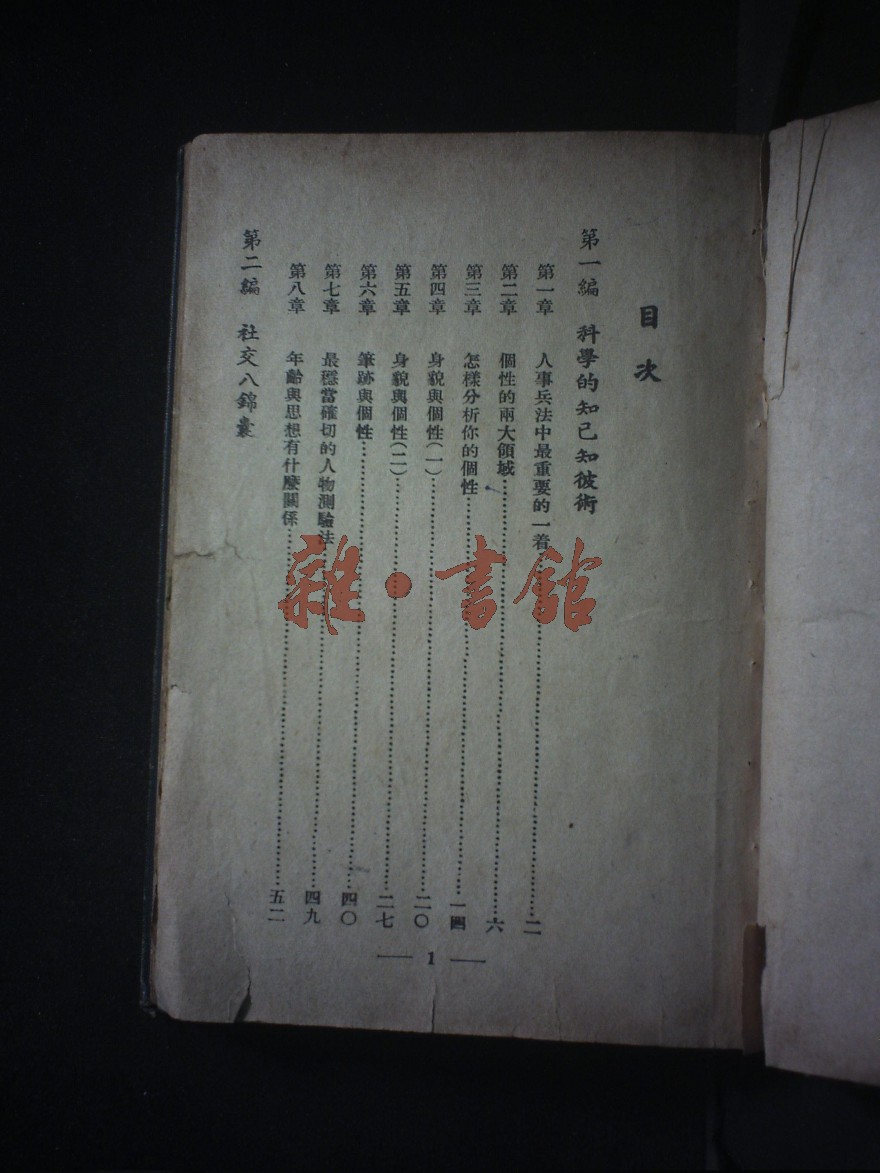 目次
第一編 科學的知己知彼術
第一章 人事兵法中最重要的一着⋯⋯二
第二章 個性的兩大領域⋯⋯六
第三章 怎樣分析你的個性⋯⋯一四
第四章 身貌與個性(一)⋯⋯二〇
第五章 身貌與個性(二)⋯⋯二七
第六章 筆跡與個性⋯⋯四〇
第七章 最穩當確切的人物測驗法⋯⋯四九
第八章 年齡與思想有什麼關係⋯⋯五二
第二編 社交八錦囊
— 1 —
雜·書館